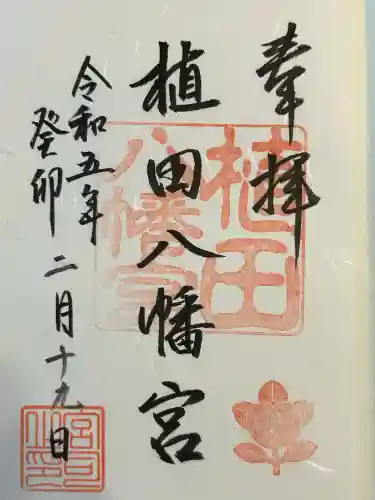 奉拝
植田八幡宮
令和五年
癸卯 二月十九日
植田
八幡宮
宮司
之印